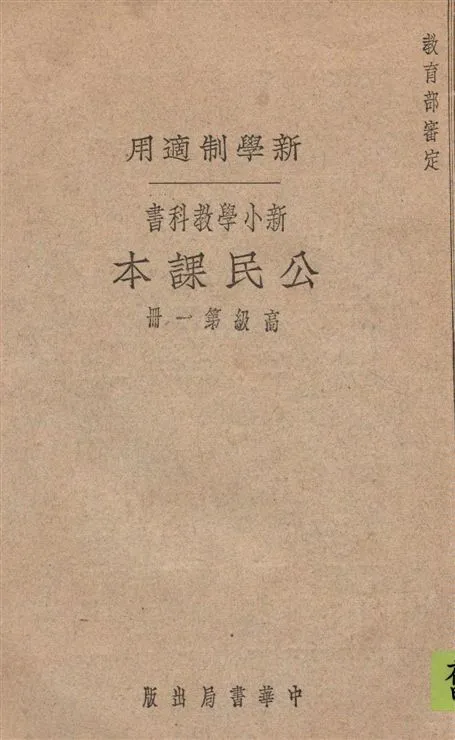 教育部審定
新學制適用
新小學教科書
公民課本
高級第一冊
中華書局出版